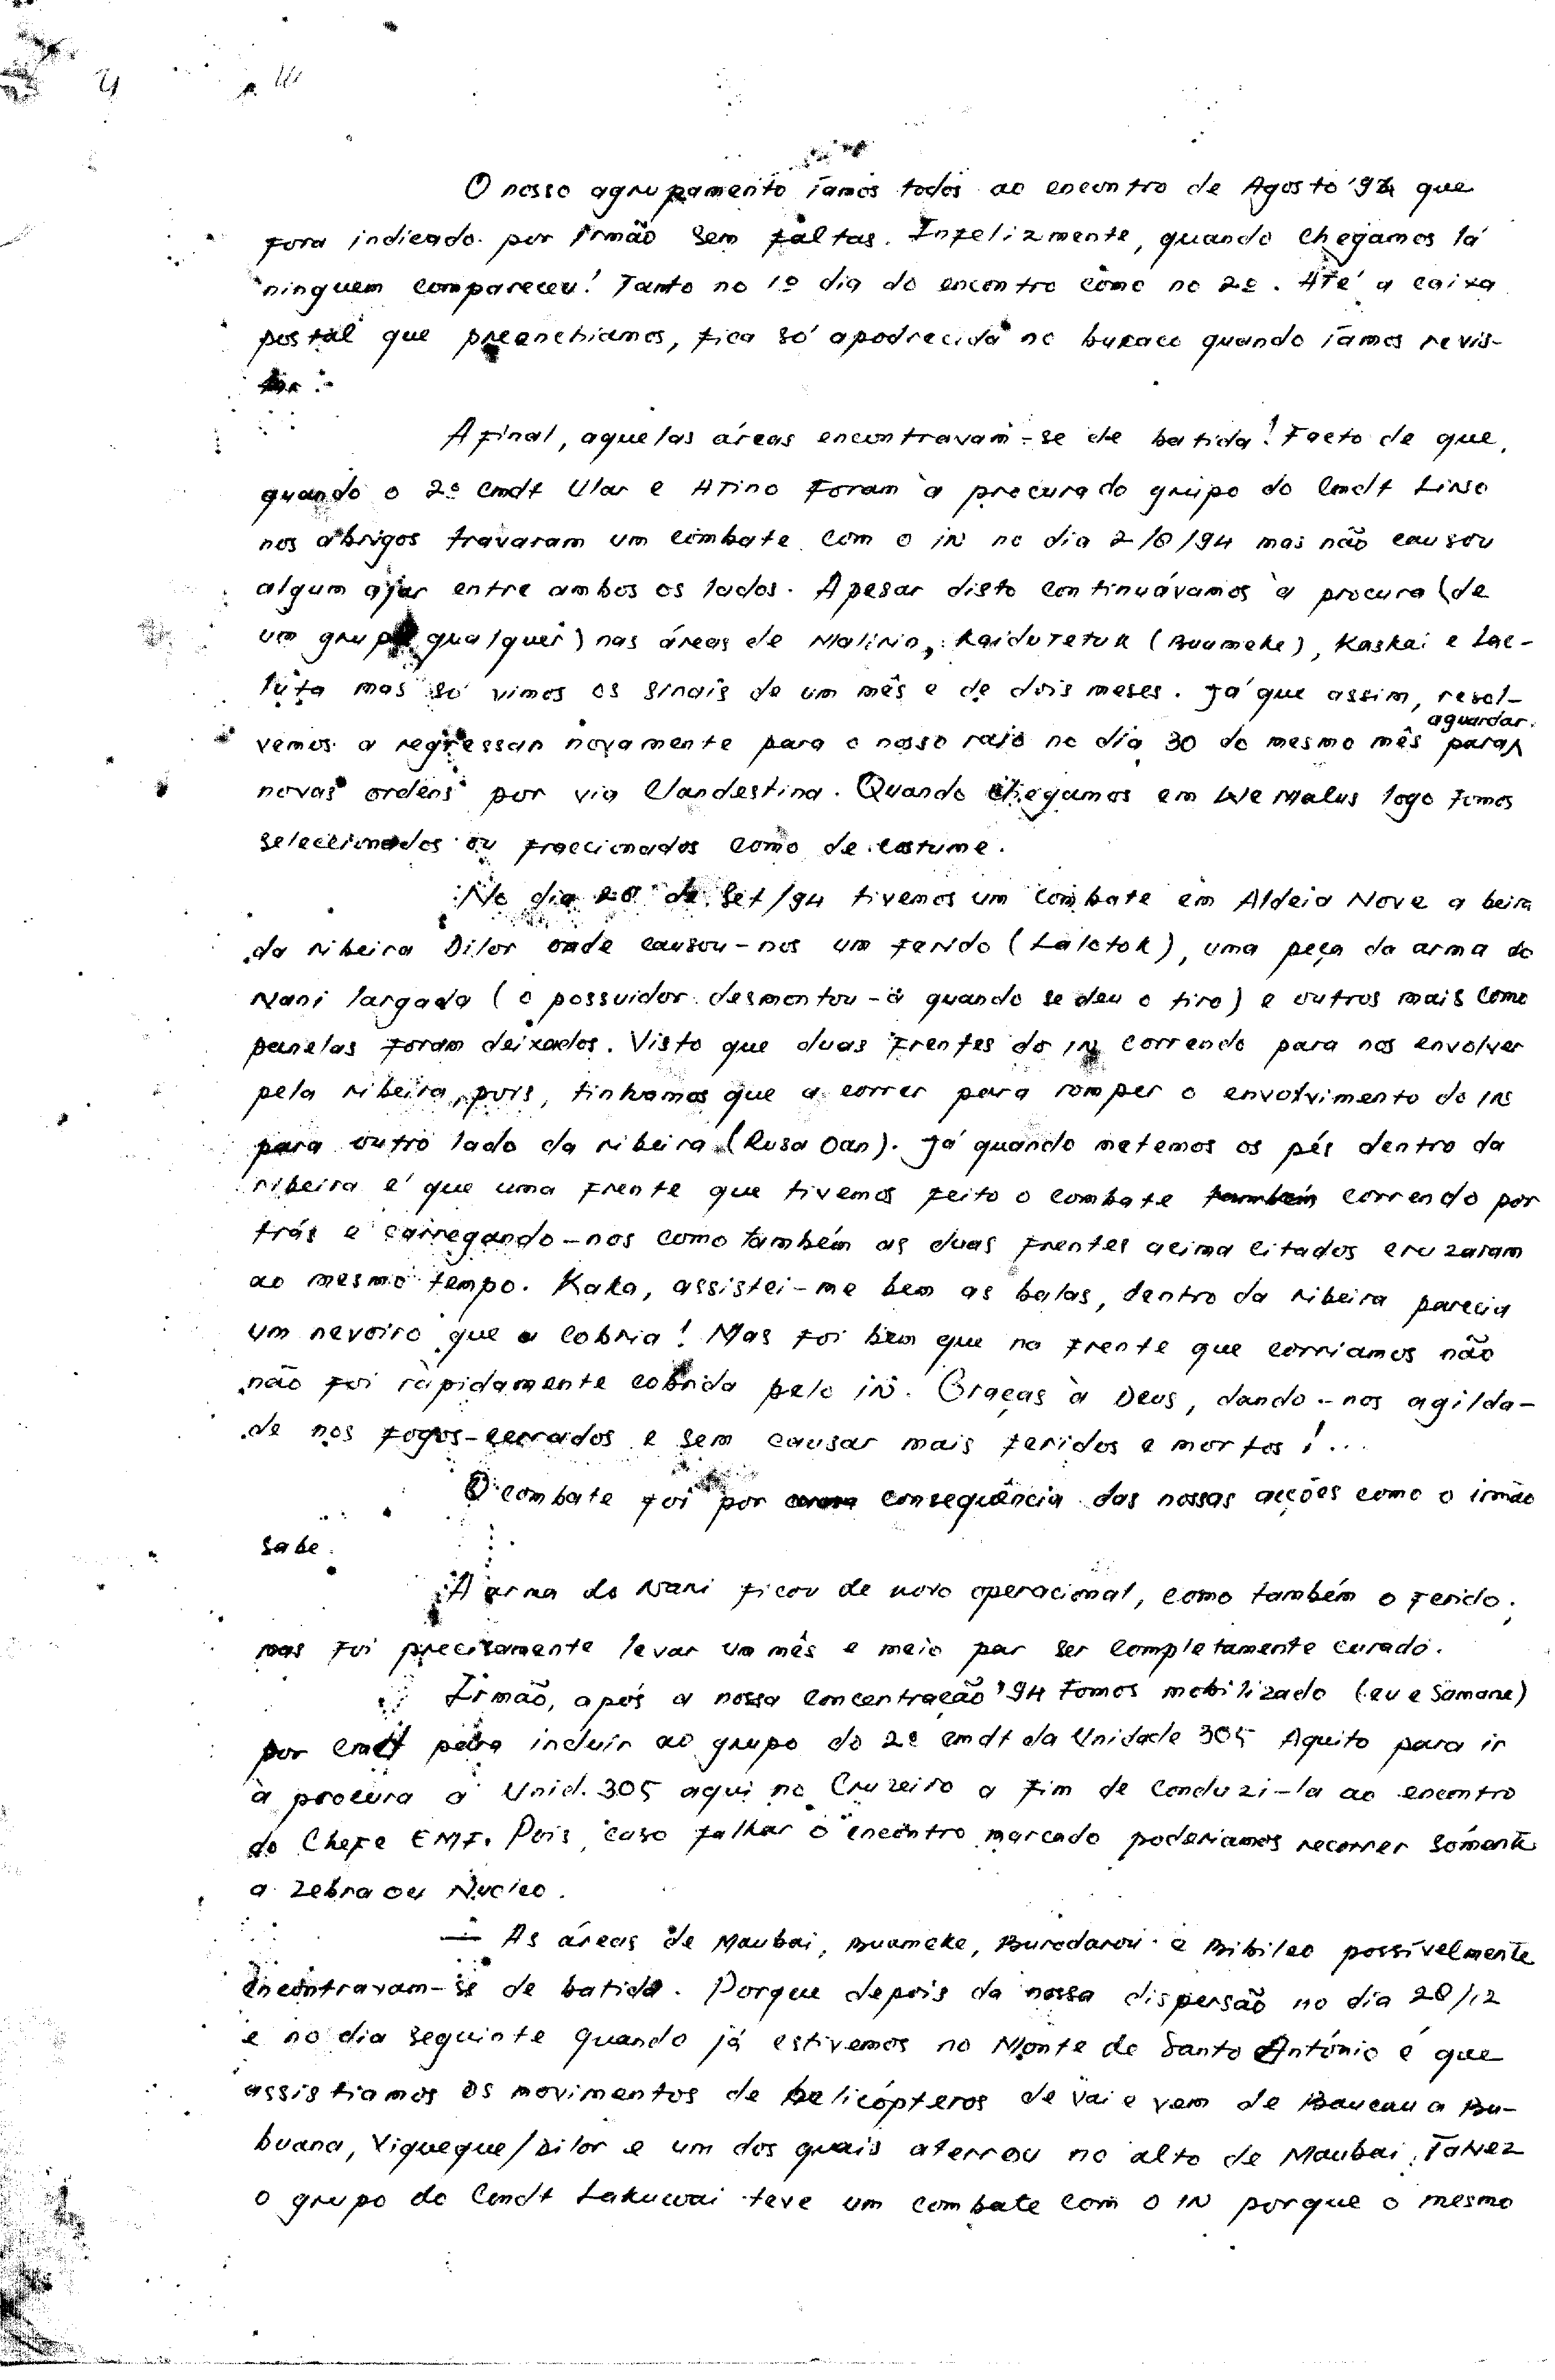 O nosso agrupamento íamos todos ao encontro de Agosto '94 que
fora indicado por Irmão sem faltas. Infelizmente, quando chegamos lá
ninguem compareceu! Tanto no 1º dia do encontro como no 2º. Até a caixa
postal que preenchiamos, fica só apodrecida no buraco quando íamos revis-
tar.
Afinal, aquelas áreas encontravam-se de batida! Facto de que,
quando o 2º cmdt Ular e Atino foram à procura do grupo do Cmdt Lirso
nos abrigos travaram um combate com o IN no dia 2/8/94 mas não causou
algum azar entre ambos os lados. Apesar disto continuávamos à procura (de
um grupo qualquer) nas áreas de Malirin, Raiduretuk (Buameke), Kaskai e Lac-
luta mas só vimos os sinais de um mês e de dois meses. Já que assim, resol-
vemos a regressar novamente para o nosso raio no dia 30 do mesmo mês para aguardar
novas ordens por via Clandestina. Quando chegamos em We Malus logo fomos
seleccionados ou fraccionados como de costume.
No dia 20 de Set/94 tivemos um combate em Aldeia Nove a beira
da ribeira Dilor onde causou-nos um ferido (Laletok), uma peça da arma do
Nani largada (o possuidor desmontou-a quando se deu o tiro) e outros mais como
panelas foram deixados. Visto que duas frentes do IN correndo para nos envolver
pela ribeira, pois, tinhamos que a correr para romper o envolvimento do INs
para outro lado da ribeira (Rusa Oan). Já quando metemos os pés dentro da
ribeira é que uma frente que tivemos feito o combate correndo por
trás e carregando-nos como também as duas frentes acima citados cruzaram
ao mesmo tempo. Kaka, assistei-me bem as balas, dentro da ribeira parecia
um nevoiro que a cobria! Mas foi bem que na frente que corriamos não
não foi ràpidamente cobrida pelo IN. Graças à Deus, dando-nos agilda-
de nos fogos-cerrados e sem causar mais feridos e mortos!...
O combate foi por consequência das nossas acções como o irmão
sabe.
A arma do Nani ficou de novo operacional, como também o ferido;
mas foi precisamente levar um mês e meio par ser completamente curado.
Irmão, após a nossa concentração '94 fomos mobilizado (eu e Samane)
por cmdt para incluir ao grupo do 2º cmdt da Unidade 305 Aquito para ir
à procura a Unid. 305 aqui no Cruzeiro a fim de conduzi-la ao encontro
do Chefe EMF. Pois, caso falhar o encontro marcado poderiamos recorrer sómente
a Zebra ou Nucleo.
— As áreas de Maubai, Buameke, Burodarou e Bibileo possívelmente
encontravam-se de batida. Porque depois da nossa dispersão no dia 28/12
e no dia seguinte quando já estivemos no Monte de Santo António é que
assistiamos os movimentos de helicópteros de vai e vem de Baucau a Bu-
buana, Viqueque/Dilor e um dos quais aterrou no alto de Maubai. Talvez
o grupo do Cmdt Lakuwai teve um combate com o IN porque o mesmo